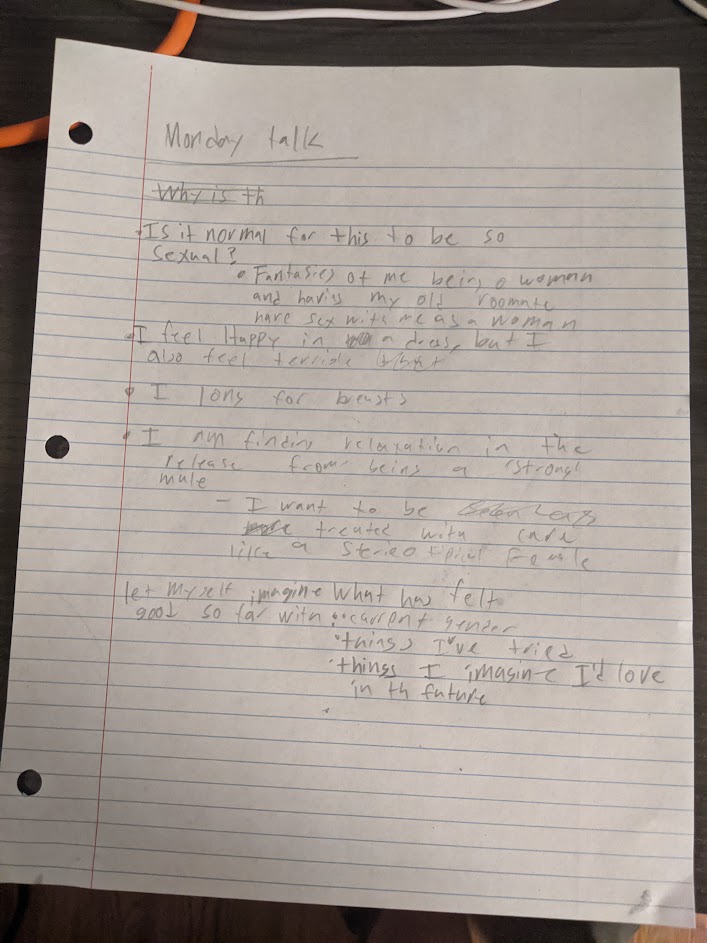 Monday talk
Why is th
Is it normal for this to be so
sexual?
Fantasies of me being a woman
and having my old roomate
have sex with me as a woman
I feel Happy in a dress, but I
also feel terrible
I long for breasts
I am finding relaxation in the
release from being a "strong"
male
- I want to be
treated with care
like a female
let myself imagine what has felt
good so far with current gender
things I've tried
things I imagine I'd love
in th future